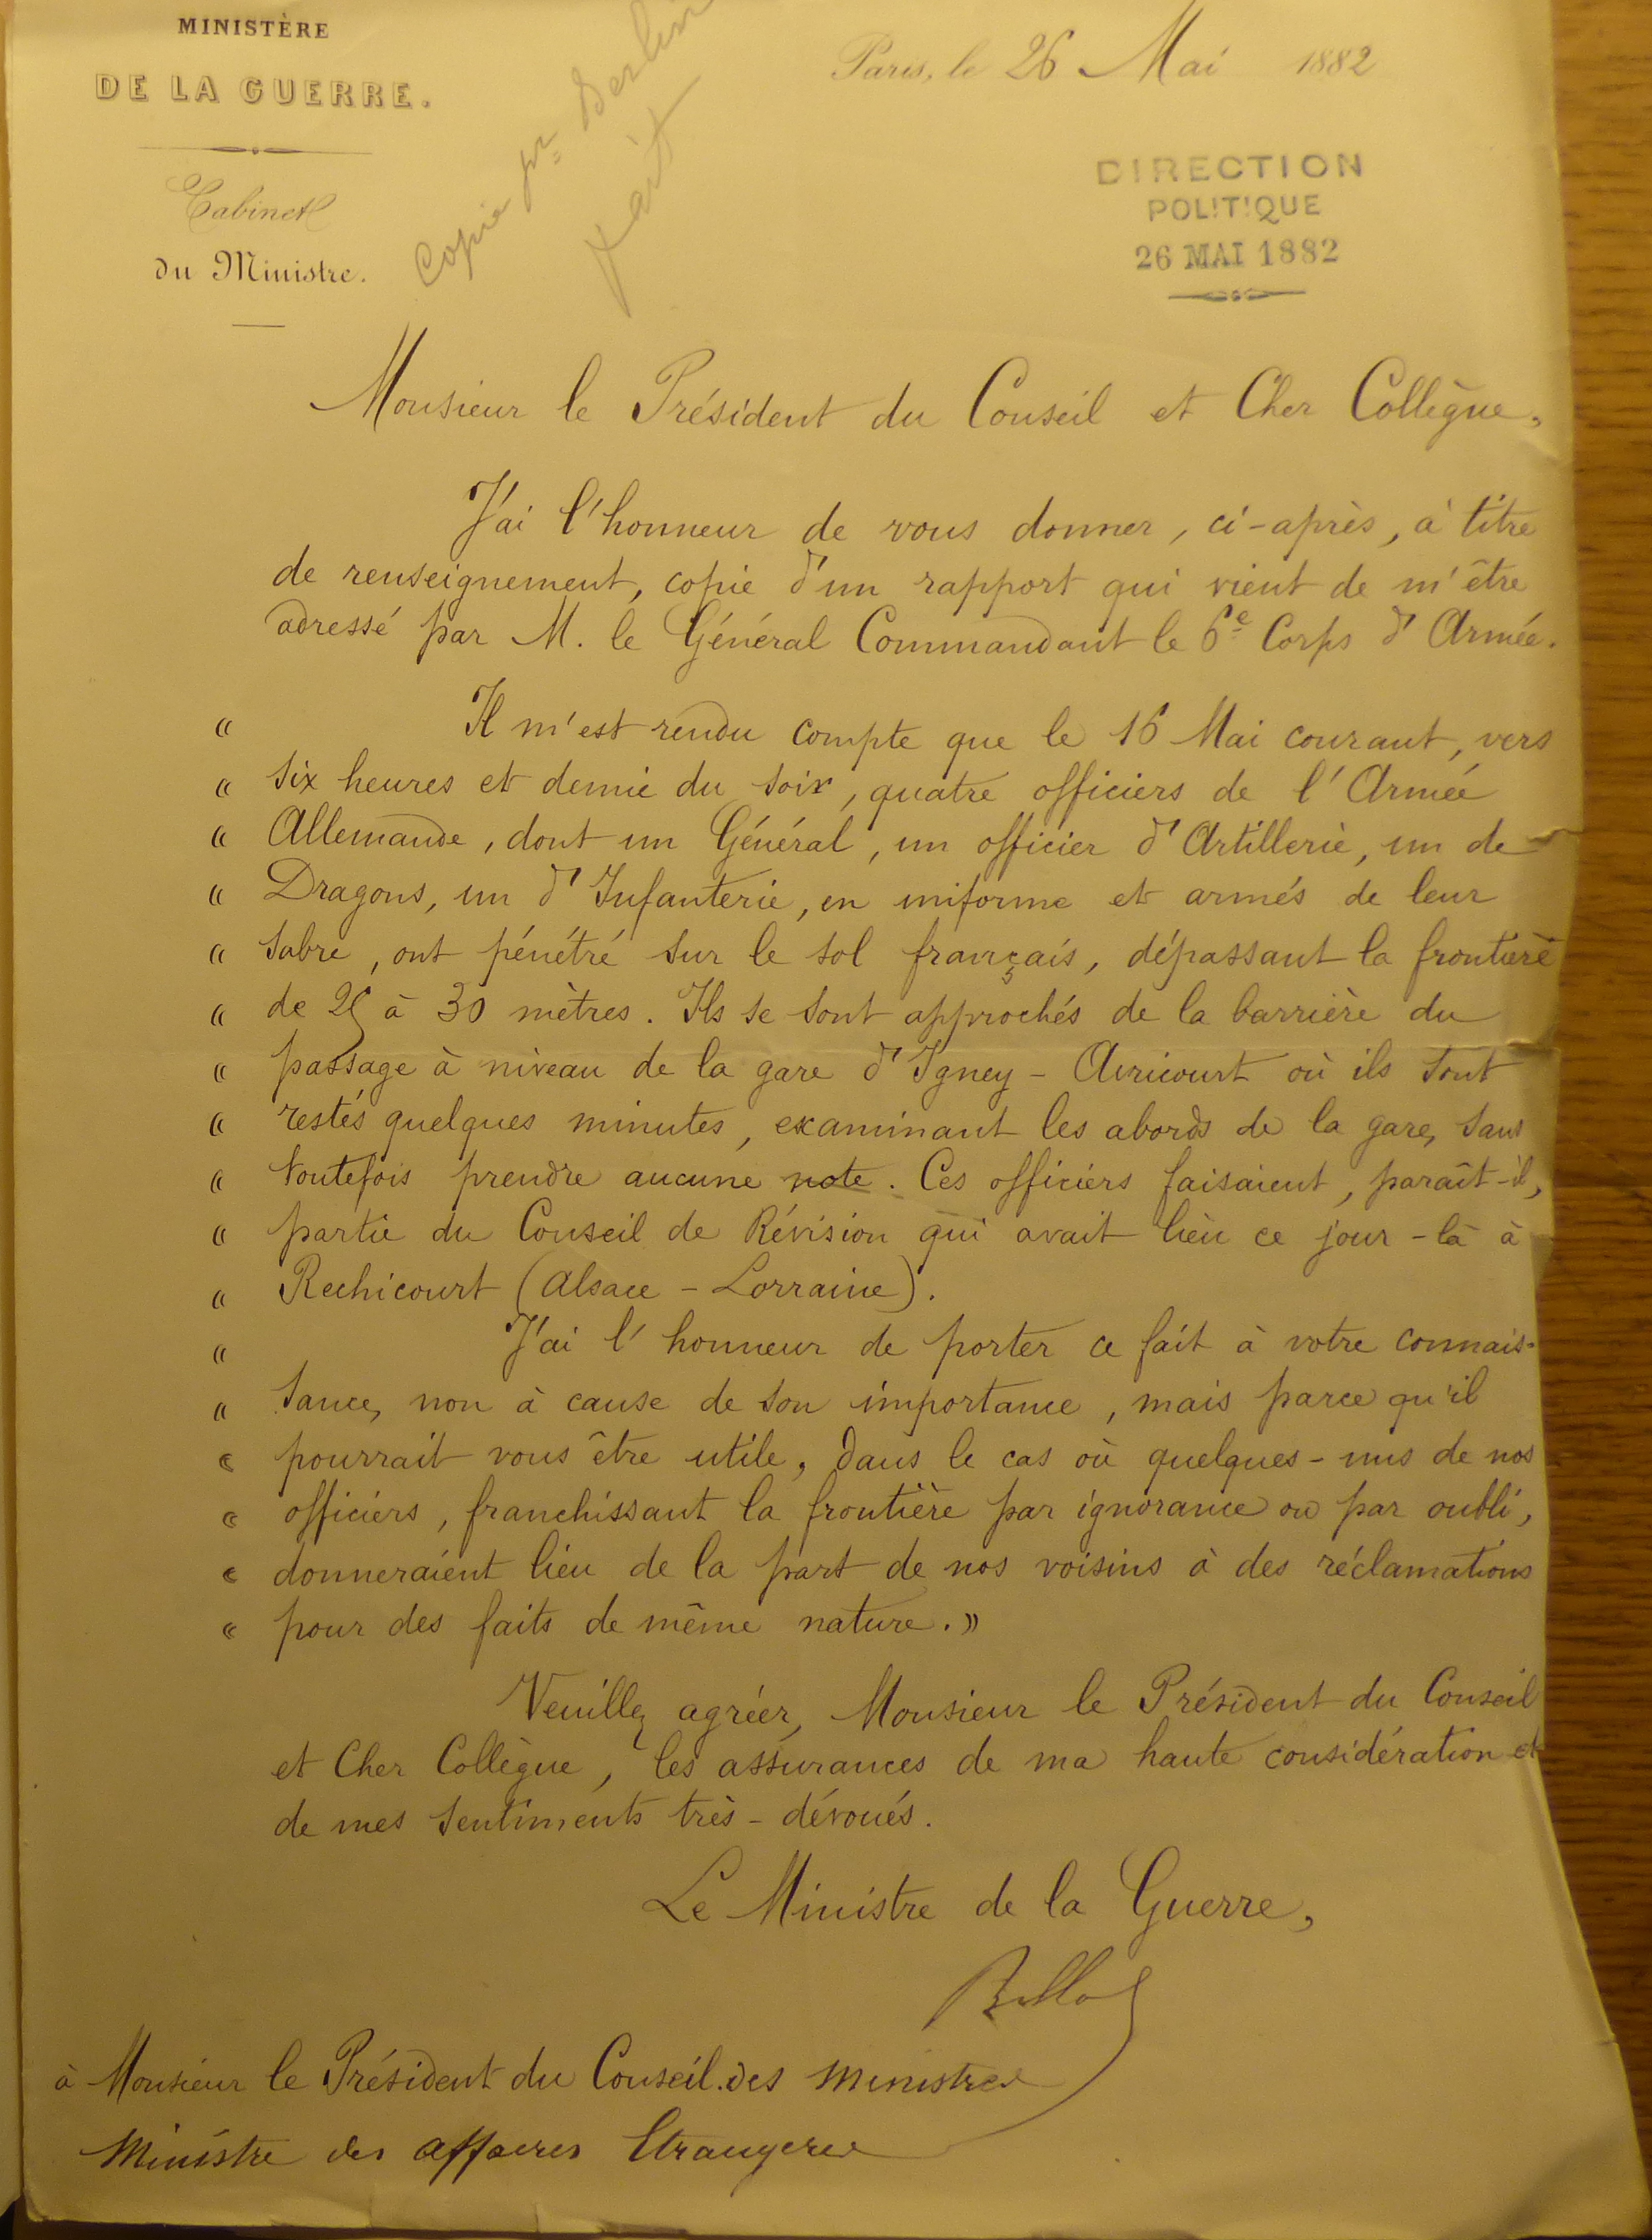 MINISTÈRE
DE LA GUERRE.
Cabinet
du Ministre.
Copie pr Berlin
fait
Paris, le 26 Mai 1882
DIRECTION
POLITIQUE
26 MAI 1882
Monsieur le Président du Conseil et Cher Collègue,
J'ai l'honneur de vous donner, ci-après, à titre
de renseignement, copie d'un rapport qui vient de m'être
adressé par M. le Général Commandant le 6e Corps d'Armée.
« Il m'est rendu compte que le 16 Mai courant, vers
« six heures et demie du soir, quatre officiers de l'Armée
« Allemande, dont un Général, un officier d'Artillerie, un de
« Dragons, un d'Infanterie, en uniforme et armés de leur
« sabre, ont pénétré sur le sol français, dépassant la frontière
« de 25 à 30 mètres. Ils se sont approchés de la barrière du
« passage à niveau de la gare d'Igney-Avricourt où ils sont
« restés quelques minutes, examinant les abords de la gare, sans
« toutefois prendre aucune note. Ces officiers faisaient, paraît-il,
« partie du Conseil de Révision qui avait lieu ce jour-là à
« Rechicourt (Alsace-Lorraine).
« J'ai l'honneur de porter ce fait à votre connais-
« sance, non à cause de son importance, mais parce qu'il
« pourrait vous être utile, dans le cas où quelques-uns de nos
« officiers, franchissant la frontière par ignorance ou par oubli,
« donneraient lieu de la part de nos voisins à des réclamations
« pour des faits de même nature. »
Veuillez agréer, Monsieur le Président du Conseil
et Cher Collègue, les assurances de ma haute considération et
de mes sentiments très-dévoués.
Le Ministre de la Guerre,
Billot
à Monsieur le Président du Conseil des Ministres
Ministre des Affaires Etrangères